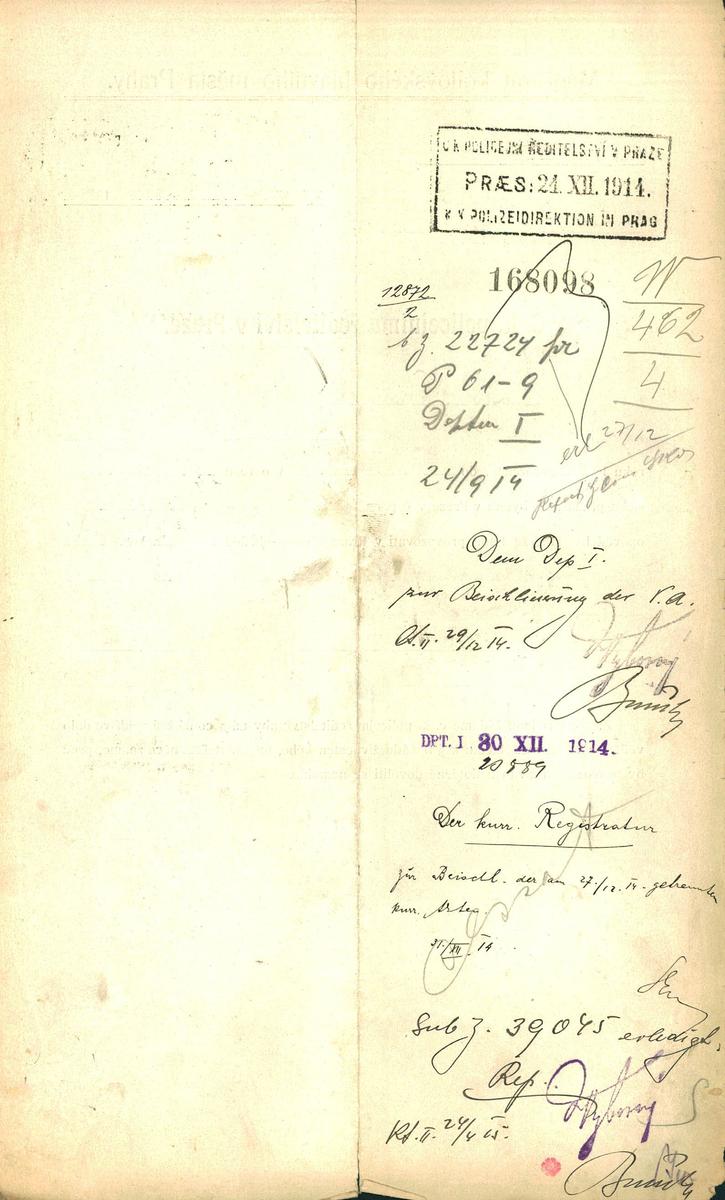 C K POLICEJNÍ ŘEDITELSTVÍ V PRAZE
PRÆS: 24. XII. 1914.
K K POLIZEIDIREKTION IN PRAG
168098
12872
2
IV
462
4
b z. 22724 pr
P 61-9
Depten I
24/9 14
erl 27/12
Dem Dep I.
zur Beischlierung der V.A.
29/12 14.
DPT. I 30 XII. 1914.
20889
Der kurr. Registratur
zur Beischl. der am 27./12. 14. getrennten
kurr. Akten.
31./XII. 14
Sub z. 39045 erledigt.
Rep.
24/4 15.